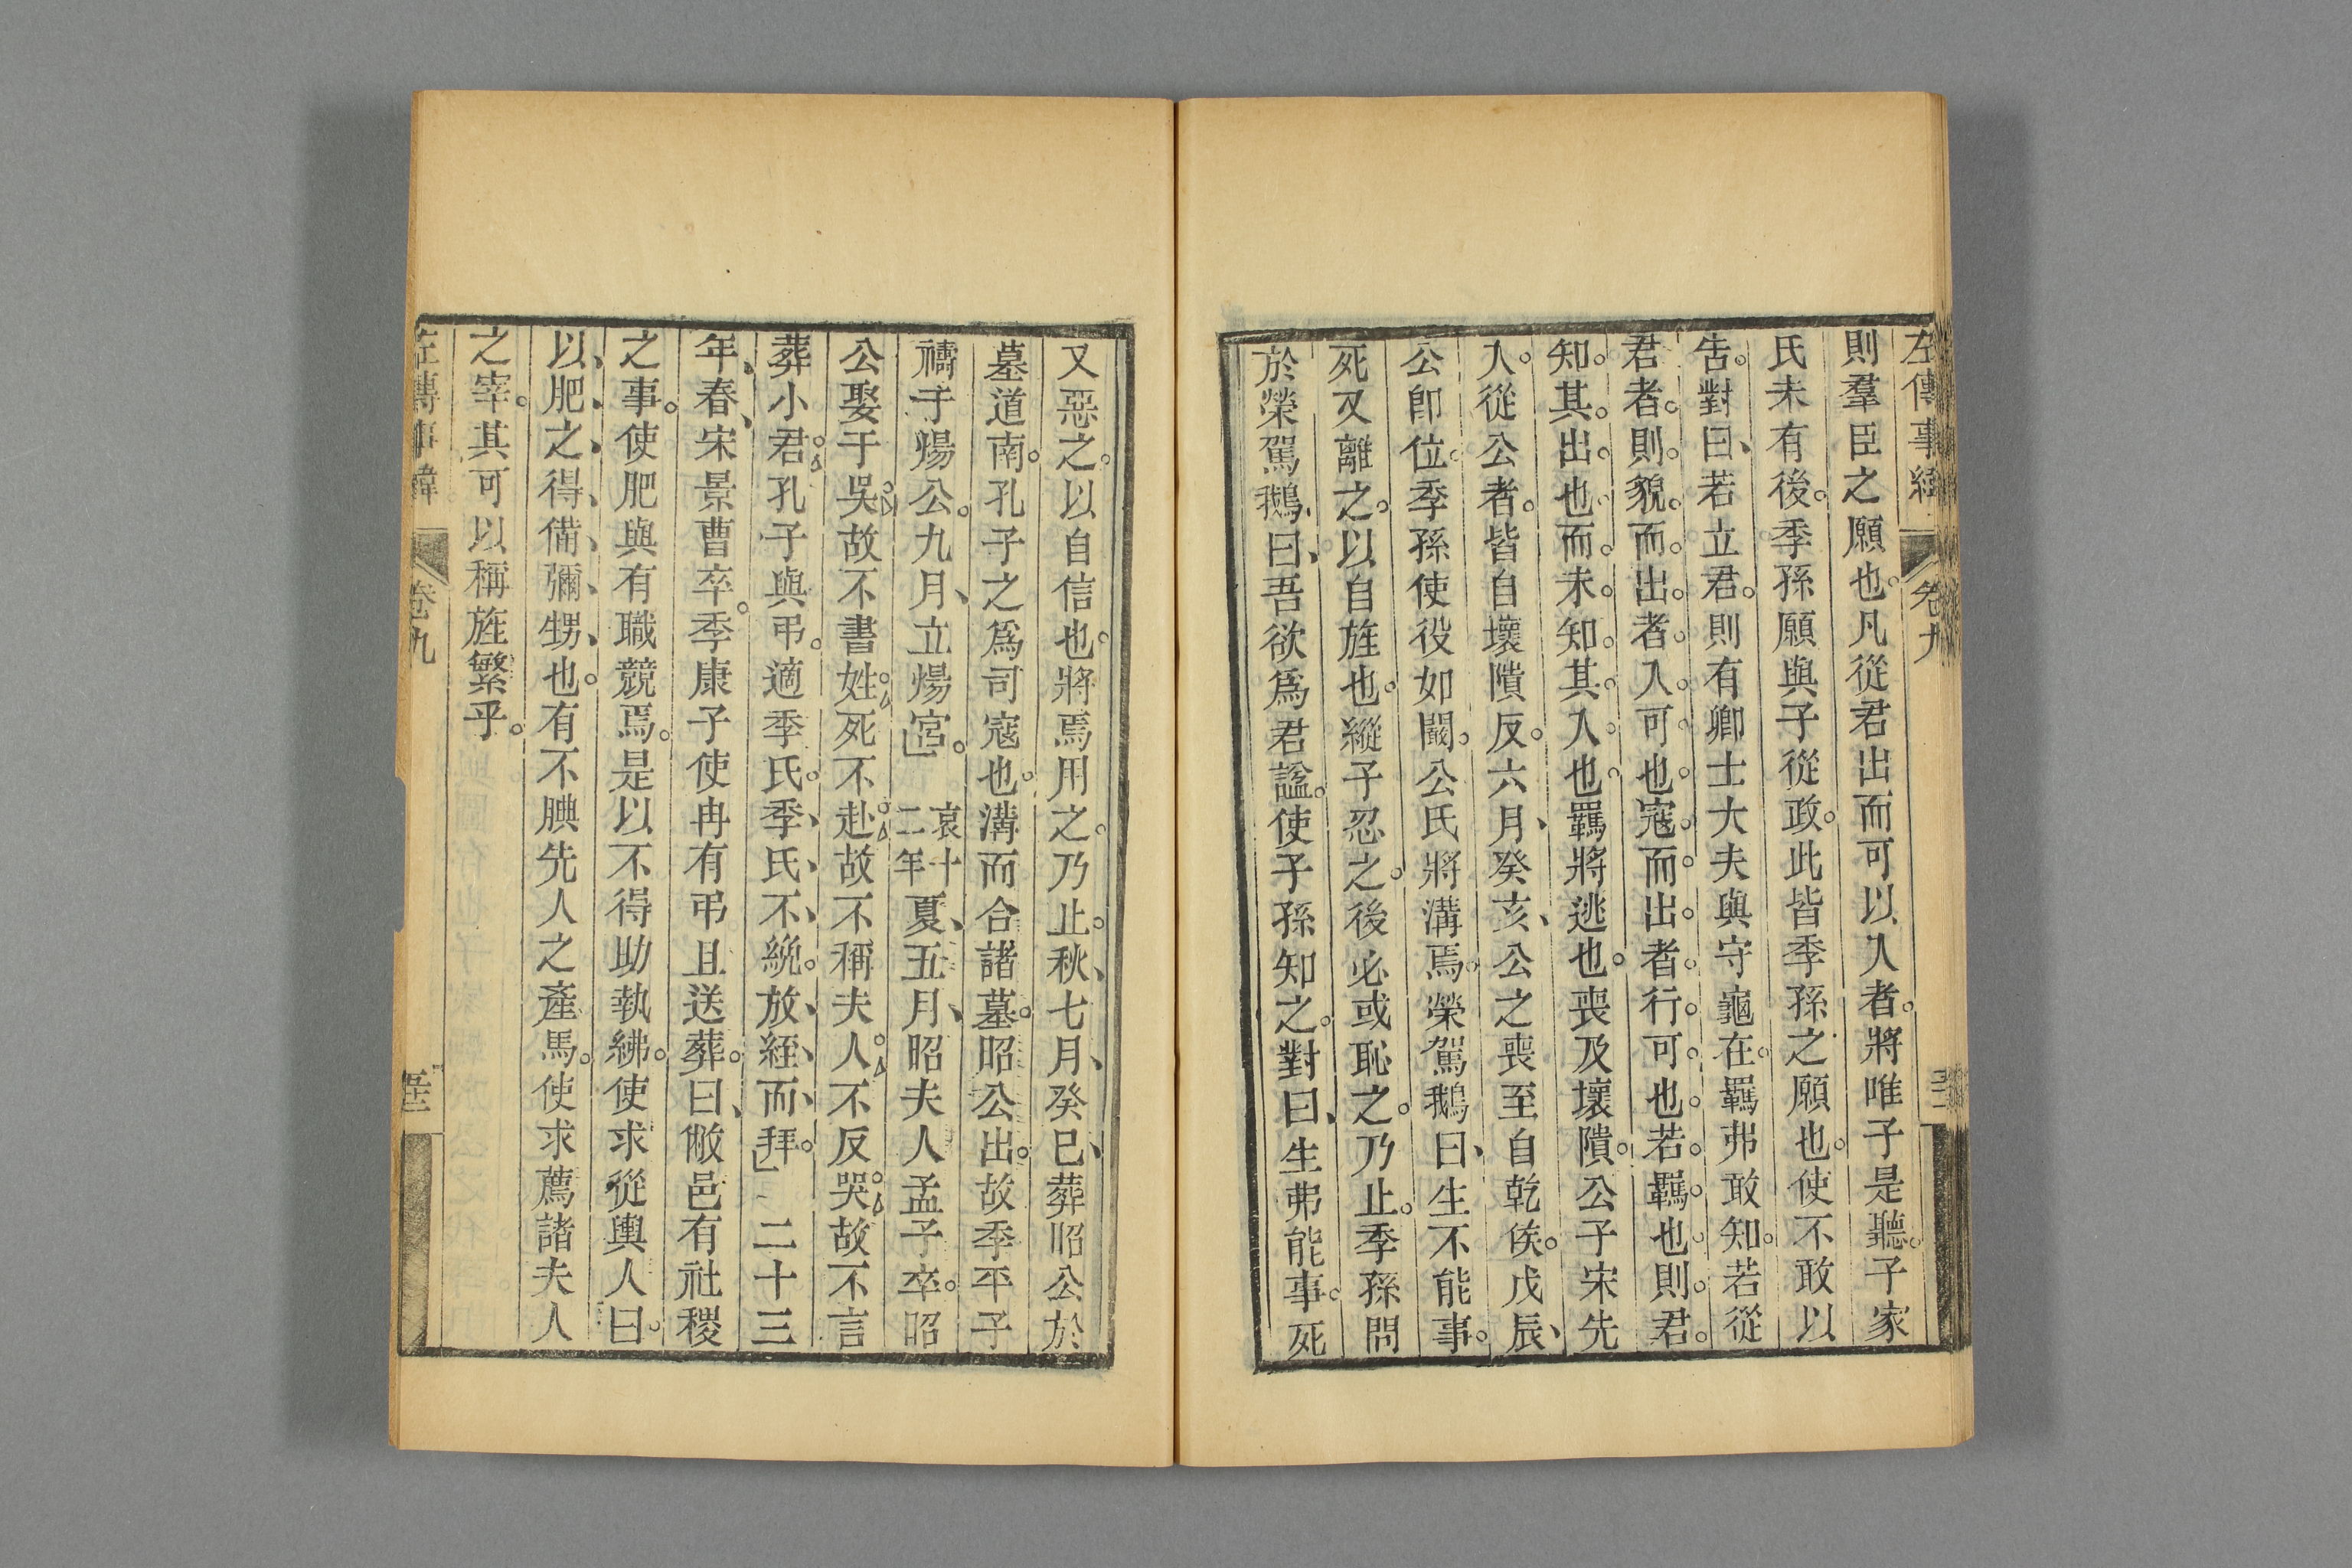 左傳事緯 卷九
則羣臣之願也。凡從君出而可以入者。將唯子是聽。子家
氏未有後。季孫願與子從政。此皆季孫之願也。使不敢以
告。對曰、若立君。則有卿士大夫與守龜在。羈弗敢知。若從
君者。則貌而出者。入可也。寇而出者。行可也。若羈也。則君
知其出也。而未知其入也。羈將逃也。喪及壞隤。公子宋先
入。從公者。皆自壞隤反。六月、癸亥、公之喪至自乾侯。戊辰、
公卽位。季孫使役如闞。公氏將溝焉。榮駕鵝曰、生不能事。
死又離之。以自旌也。縱子忍之。後必或恥之。乃止。季孫問
於榮駕鵝、曰、吾欲爲君諡。使子孫知之。對曰、生弗能事。死
又惡之。以自信也。將焉用之。乃止。秋、七月、癸巳、葬昭公於
墓道南。孔子之爲司寇也。溝而合諸墓。昭公出。故季平子
禱于煬公。九月、立煬宮。」 哀十二年夏、五月、昭夫人孟子卒。昭
公娶于吳。故不書姓。死不赴。故不稱夫人。不反哭。故不言
葬小君。孔子與弔。適季氏。季、氏、不、絻。放、絰、而、拜。」 二十三
年、春、宋景曹卒。季康子使冉有弔且送葬。曰、敝邑有社稷
之事。使肥與有職競焉。是以不得助執紼。使求從輿人曰。
以、肥、之、得、備、彌、甥、也。有不腆先人之產馬。使求薦諸夫人
之宰。其可以稱旌繁乎。
左傳事緯 卷九